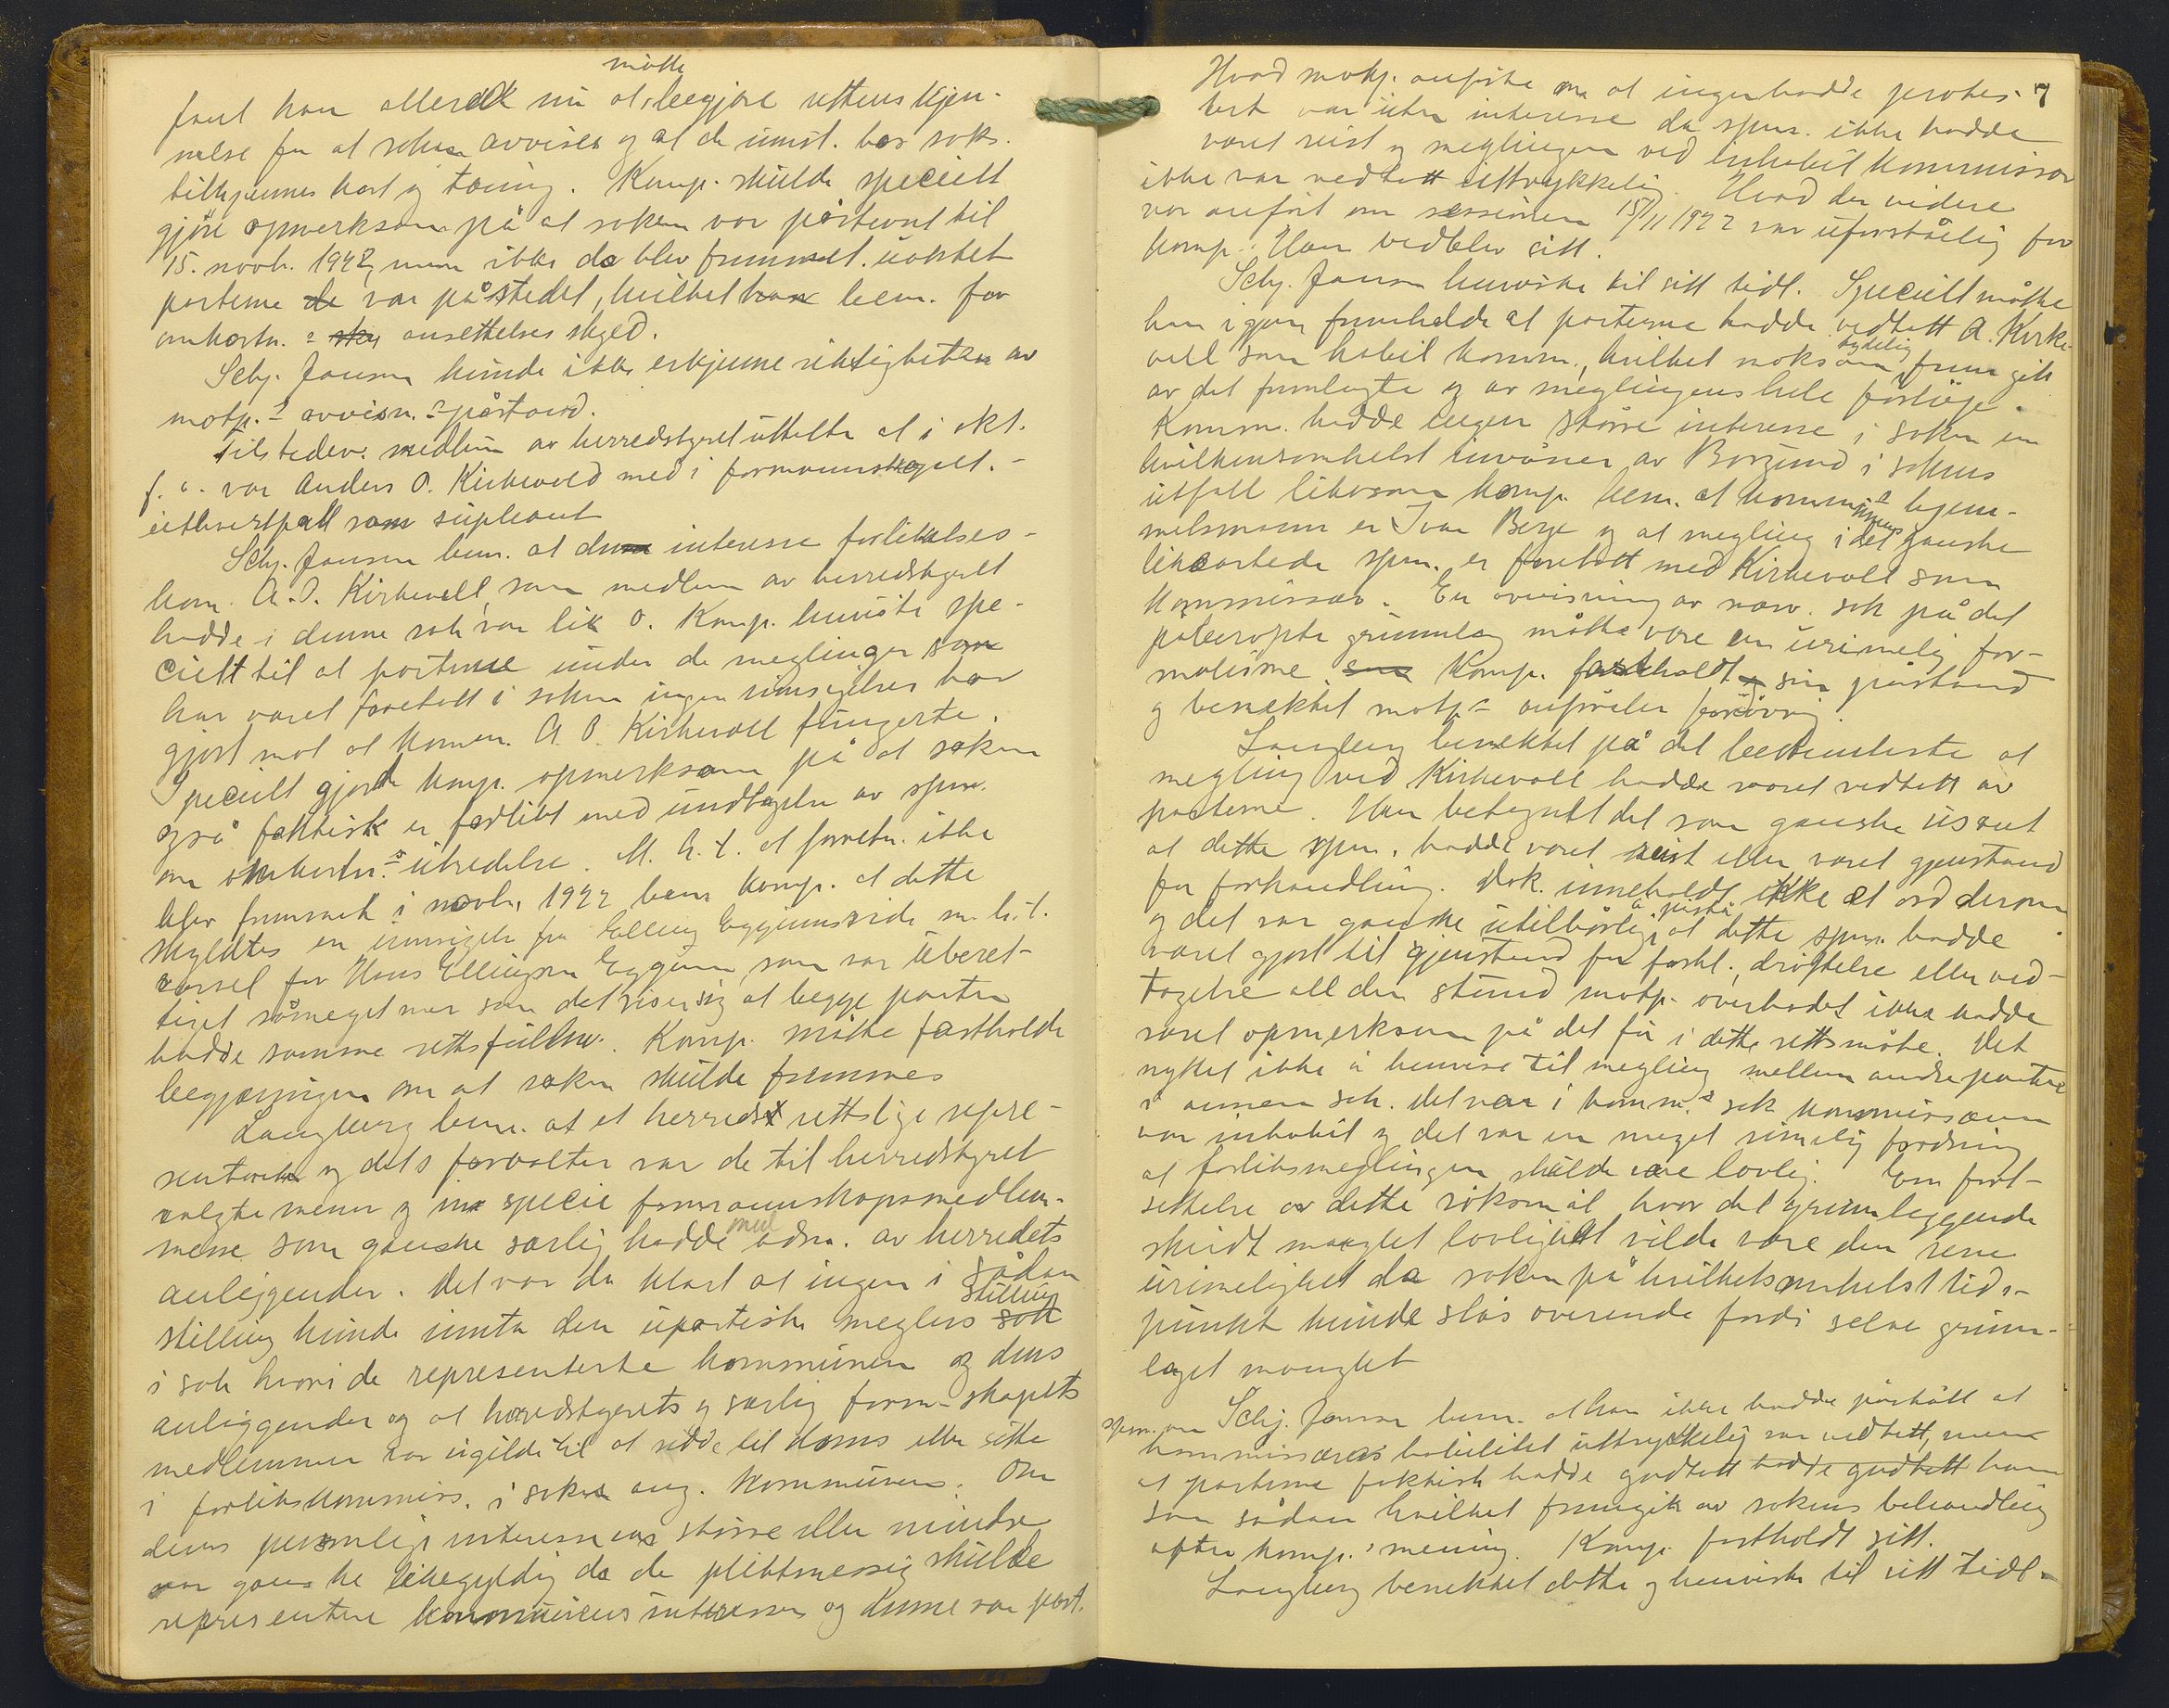 måtte
fant han allerede nu at begjære rettens kjen-
nelse for at saken avvises og at de innst. bør saks.
tilkjennes kost og tæring. Komp. skulde specielt
gjøre opmerksom på at saken var påstevnt til
15. novb. 1922, men ikke da blev fremmet uaktet
parterne de var på stedet, hvilket bem. for
omkostn. s ansettelses skyld.
Schj. Jansen kunde ikke erkjenne riktigheten av
motp. s avvisn. s påstand.
Tilstedev. medlem av herredstyret uttalte at i okt.
f. å. var Anders O. Kirkevold med i formannskapet. -
ethvertfall som supleant
Schj. Jansen bem. at den interesse forlikelses-
kom. A. O. Kirkevoll som medlem av herredstyret
hadde i denne sak var lik 0. Komp. henviste spe-
cielt til at parterne under de meglinger som
har været foretatt i saken ingen innsigelser har
gjort mot at komm. A. O. Kirkevoll fungerte.
Specielt gjorde komp. opmerksom på at saken
også faktisk er forlikt med undtagelse av spm.
om omkostn. s utredelse. M. h. t. at forretn. ikke
blev fremmet i novb. 1922 bem. komp. at dette
skyldtes en innsigelse fra Elling Eggjenes side m. h. t.
varsel for Hans Ellingsen Eggjenes som var uberet-
tiget såmeget mer som det viser sig at begge parter
hadde samme rettsfullm. Komp. måtte fastholde
begjæringen om at saken skulde fremmes
Langberg bem. at et herreds rettslige repre-
sentanter og dets forvalter var de til herredstyret
valgte menn og in specie formannskapsmedlem-
mene som ganske særlig hadde med adm. av herredets
anliggender. Det var da klart at ingen i sådan
stilling kunde innta den upartiske meglers sak stilling
i sak hvori de representerte kommunen og dens
anliggender og at herredstyrets og særlig form.skapets
medlemmer var ugilde til at sidde til doms eller sitte
i forlikskommiss. i saker ang. kommunen. Om
deres personlige interesse var større eller mindre
var ganske likegyldig da de pliktmessig skulde
representere kommunens interesser og denne var part.
7
Hvad motp. anførte om at ingen hadde protes-
tert var uten interesse da spm. ikke hadde
været reist og meglingen ved inhabil kommissær
ikke var vedtatt uttrykkelig. Hvad der videre
var anført om sessionen 15/11 1922 var uforståelig for
komp. Han vedblev sitt.
Schj. Jansen henviste til sitt tidl. Specielt måtte
han igjen fremholde at parterne hadde vedtatt A. Kirke-
voll som habil komm., hvilket noksom tydelig fremgikk
av det fremlagte og av meglingens hele forløp.
Komm. hadde ingen større interesse i saken enn
hvilkensomhelst innvåner av Borgund i sakens
utfall likesom komp. bem. at kommunens hjem-
melsmann er Ivar Berge og at megling i det ganske
likeartede spm. er foretatt med Kirkevoll som
kommissær. En avvisning av nærv. sak på det
påberopte grunnlag måtte være en urimelig for-
malisme. Komp. fastholdt sin påstand
og benektet motp. s anførsler forøvrig.
Langberg benektet på det bestemteste at
megling ved Kirkevoll hadde været vedtatt av
parterne. Han betegnet det som ganske usant
at dette spm. hadde været reist eller været gjenstand
for forhandling. Dok. inneholdt ikke et ord derom
og det var ganske utilbørlig å påstå at dette spm. hadde
været gjort til gjenstand for forhl., drøftelse eller ved-
tagelse all den stund motp. overhodet ikke hadde
været opmerksom på det før i dette rettsmøte. Det
nyttet ikke å henvise til megling mellem andre parter
i annen sak. Det var i komm. s sak kommissæren
var inhabil og det var en meget rimelig fordring
at forliksmeglingen skulde være lovlig. En fort-
settelse av dette søksmål hvor det grunnleggende
skridt manglet lovlighet vilde være den rene
urimelighet da saken på hvilketsomhelst tids-
punkt kunde slås overende fordi selve grunn-
laget manglet
Schj. Jansen bem. at han ikke hadde påstått at
spm. om kommissærens habilitet uttrykkelig var vedtatt, men
at parterne faktisk hadde godtatt hadde godtatt ham
som sådan hvilket fremgikk av sakens behandling
efter komp.' mening. Komp. fastholdt sitt.
Langberg benektet dette og henviste til sitt tidl.